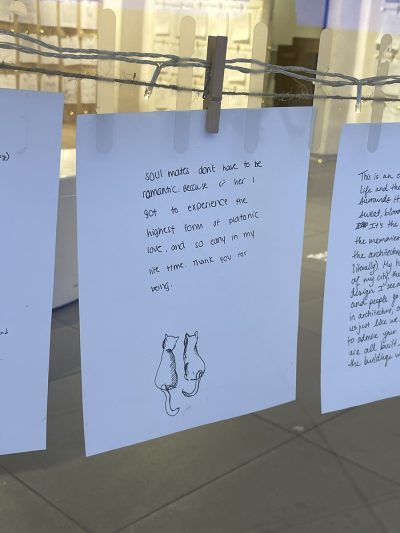 soul mates don't have to be
romantic. Because of her I
got to experience the
highest form of platonic
love, and so early in my
life time. Thank you for
being.
This is an o
life and the
surrounds it
sweat, bloo
It's the
the memories
the architectu
literally). My h
of my city, the
design I sea
and people go
in architecture, a
us just like we
to admire your
are all built.
the buildings w